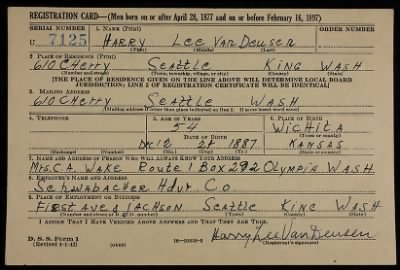 REGISTRATION CARD—(Men born on or after April 28, 1877 and on or before February 16, 1897)
SERIAL NUMBER 1. NAME (Print) ORDER NUMBER
U 7125 HARRY Lee Van Deusen
(First) (Middle) (Last)
2. PLACE OF RESIDENCE (Print)
610 CHerry Seattle KING WASH
(Number and street) (Town, township, village, or city) (County) (State)
[THE PLACE OF RESIDENCE GIVEN ON THE LINE ABOVE WILL DETERMINE LOCAL BOARD
JURISDICTION; LINE 2 OF REGISTRATION CERTIFICATE WILL BE IDENTICAL]
3. MAILING ADDRESS
610 CHerry Seattle WASH
(Mailing address if other than place indicated on line 2. If same insert word same)
4. TELEPHONE 5. AGE IN YEARS 6. PLACE OF BIRTH
54 Wichita
DATE OF BIRTH (Town or county)
28 1887 KANSAS
(Exchange) (Number) (Mo.) (Day) (Yr.) (State or country)
7. NAME AND ADDRESS OF PERSON WHO WILL ALWAYS KNOW YOUR ADDRESS
Mrs. C.A. WAKE Route 1 Box 292 Olympia WASH
8. EMPLOYER'S NAME AND ADDRESS
Schwabacher Hdw Co.
9. PLACE OF EMPLOYMENT OR BUSINESS
First Ave & JACKSON Seattle KING WASH
(Number and street or R. F. D. number) (Town) (County) (State)
I AFFIRM THAT I HAVE VERIFIED ABOVE ANSWERS AND THAT THEY ARE TRUE.
D. S. S. Form 1 Harry Lee Van Deusen
(Revised 4-1-42) (over) (Registrant's signature)